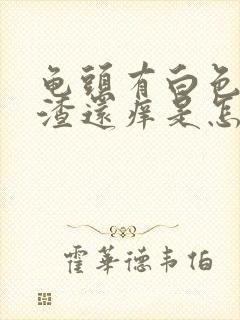 龟頭有白色
渣還痒是怎
霍華德韦伯